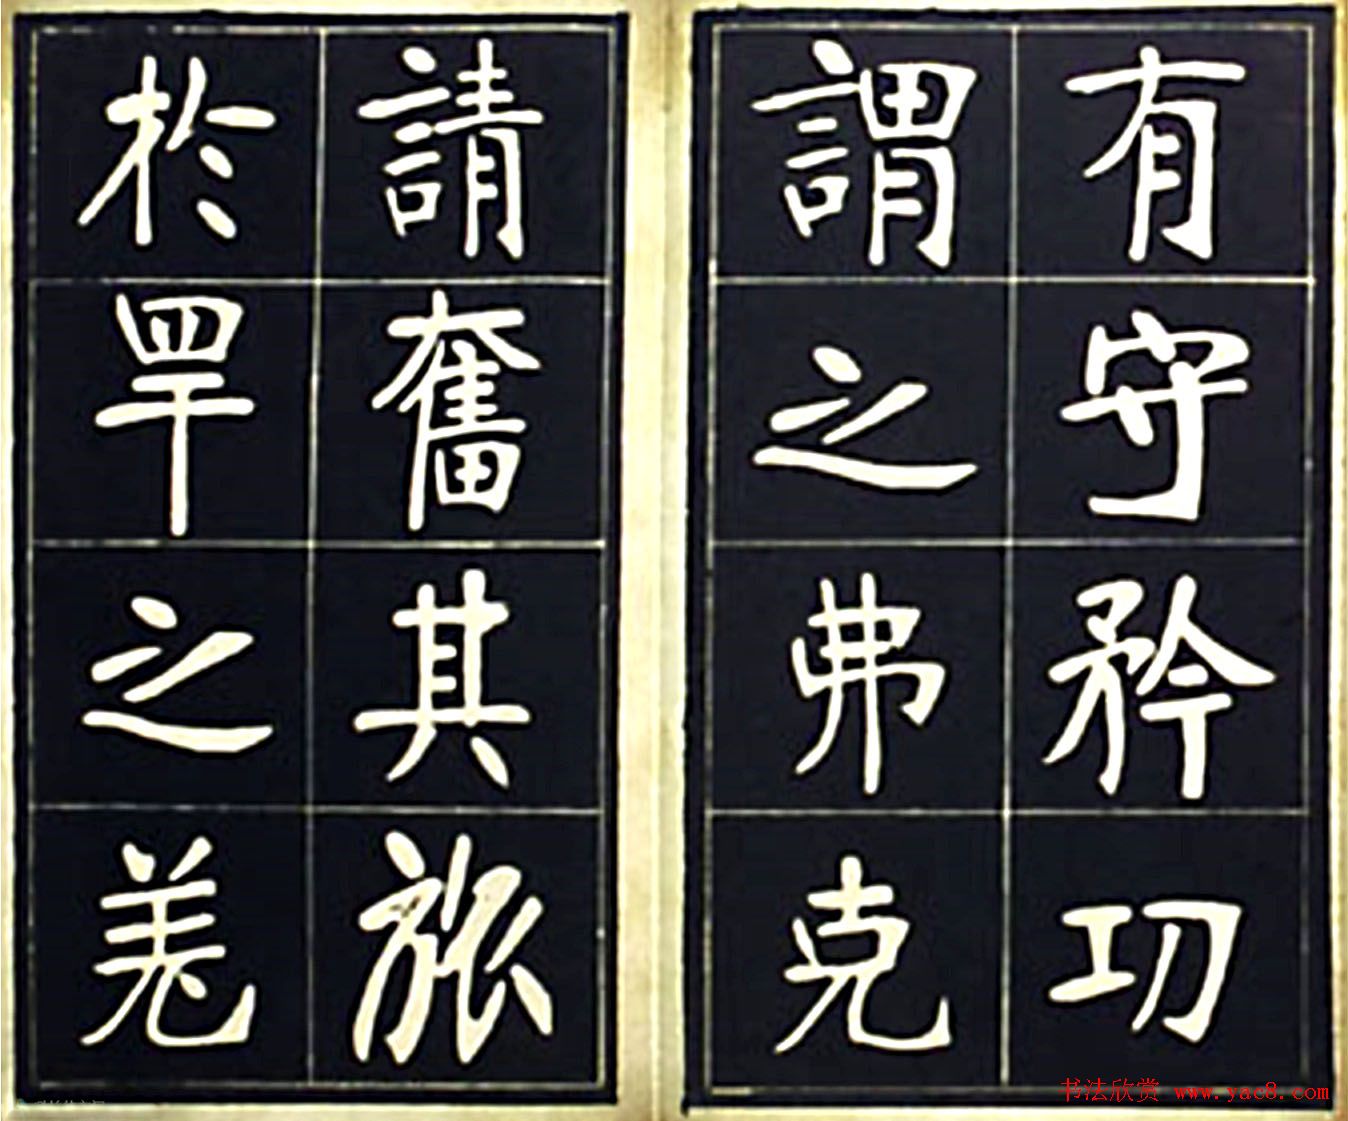 有守矜功
謂之弗克
請奮其旅
於罕之羌
书法欣赏 www.yac8.com